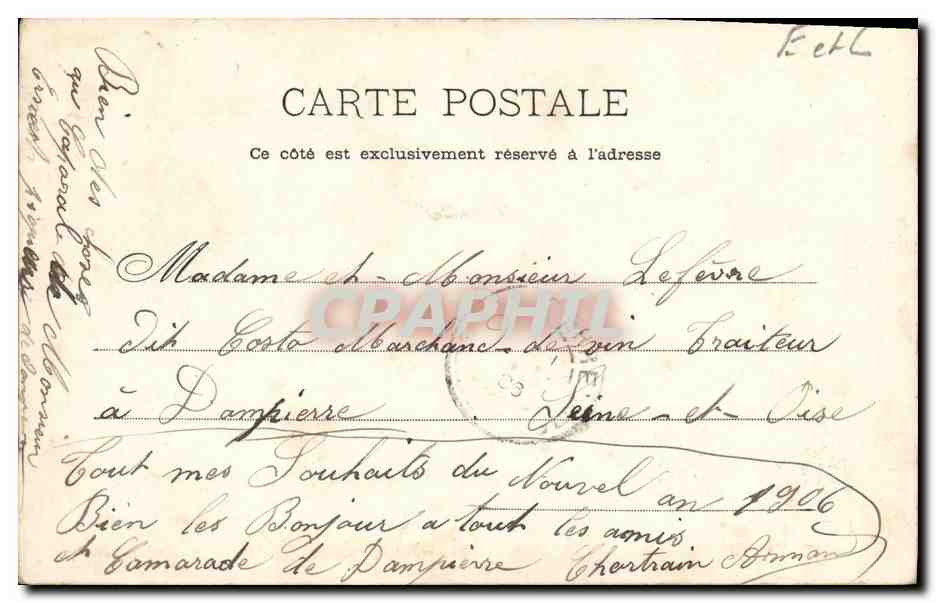 E et L
CARTE POSTALE
Ce côté est exclusivement réservé à l'adresse
Madame et Monsieur Lefèvre
dit Costo Marchand de vin Traiteur
à Dampierre Seine-et-Oise
Tout mes Souhaits du Nouvel an 1906
Bien les Bonjour a tout les amis
et Camarade de Dampierre Chartrain Armand
Bien des choses
au Caporal de Monsieur
CPARHIL